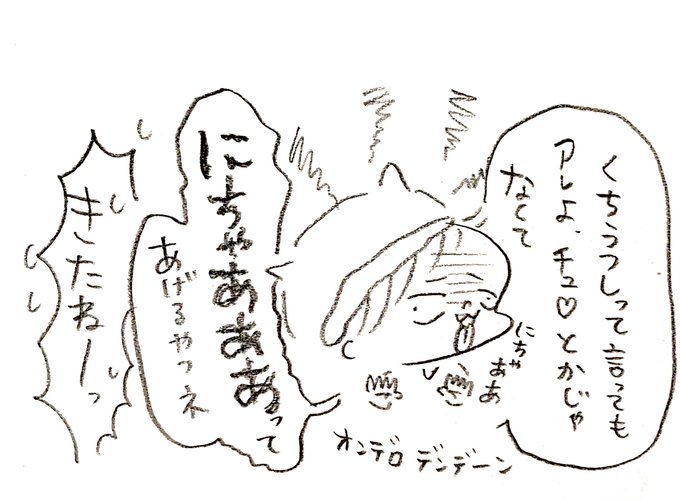 くちうつしって言っても
アレよ、チュ♡とかじゃ
なくて
にちゃああ
にちゃあああって
あげるやつネ
きたねーっ
オンデロデンデーン